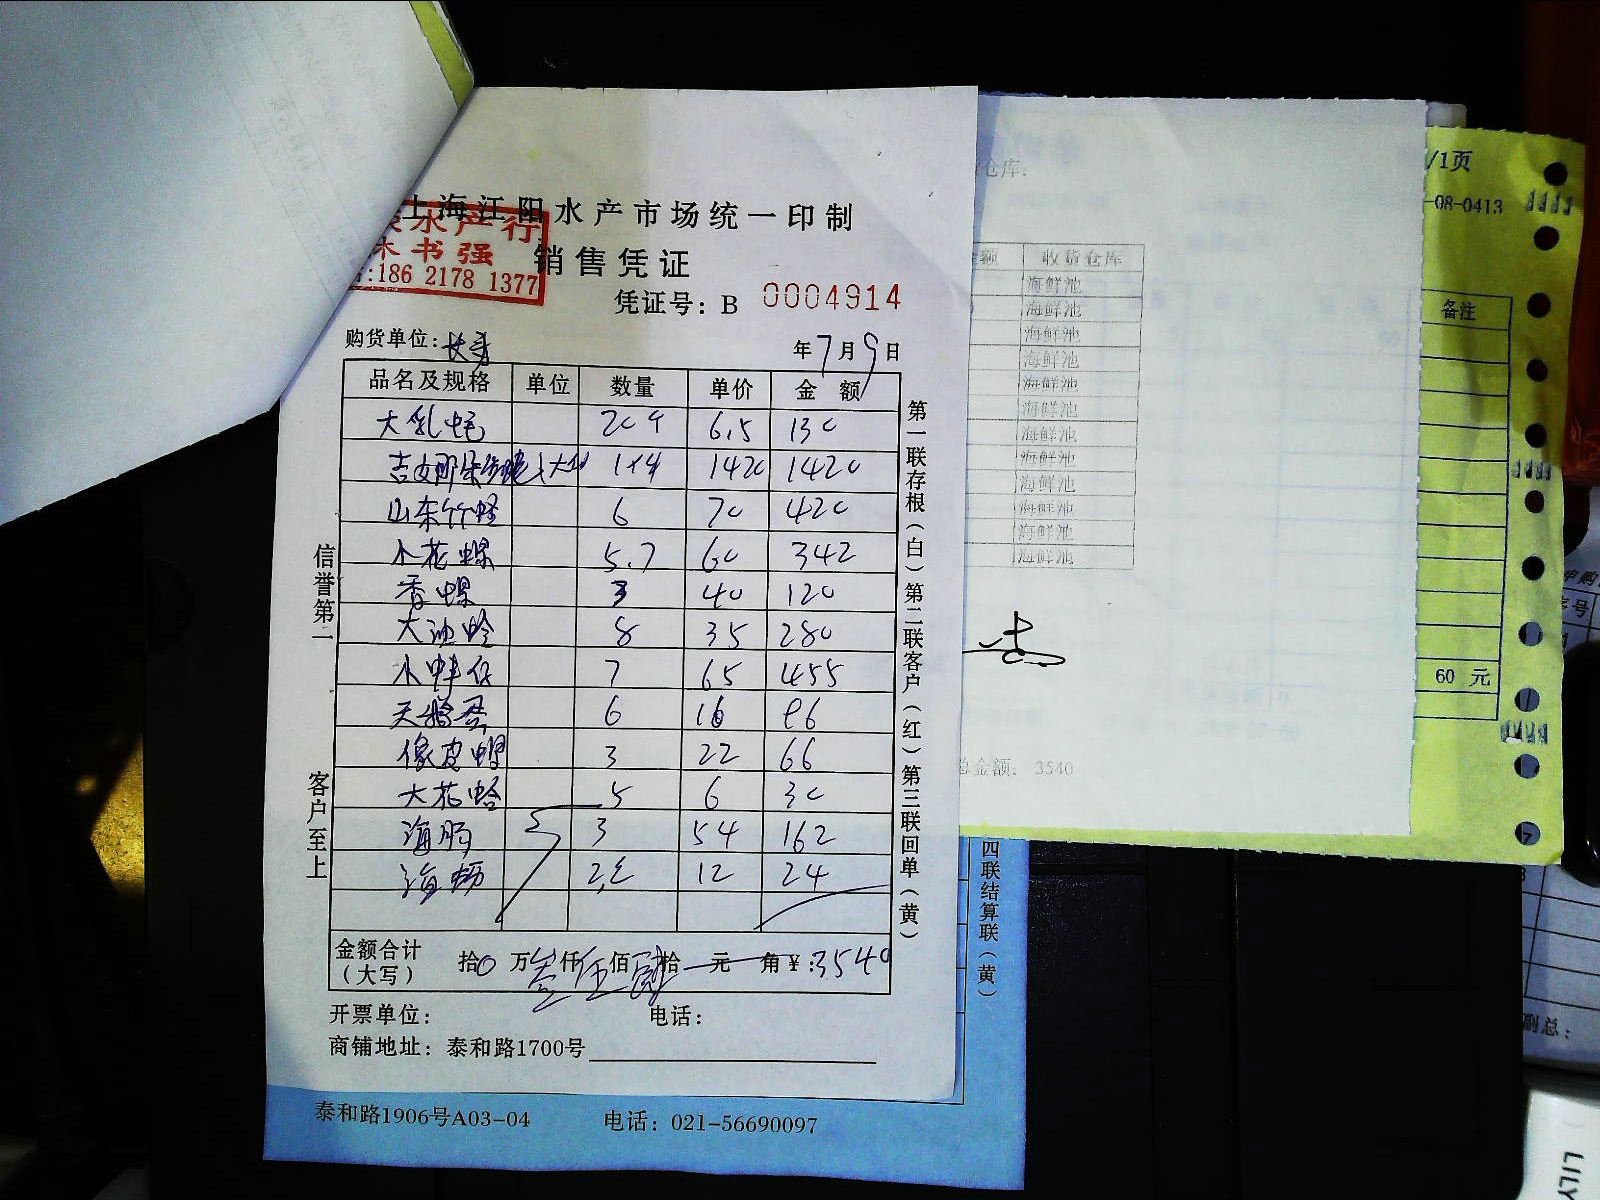 上海江阳水产市场统一印制
水产行
书强
:186 2178 1377
销售凭证
凭证号: B 0004914
购货单位:
年7月9日
品名及规格 单位 数量 单价 金额
大乳 20个 6.5 130
吉 1420 1420
山东竹蛏 6 70 420
小花螺 5.7 60 342
香螺 3 40 120
大油蛤 8 35 280
小 仔 7 65 455
天鹅蛋 6 16 96
像皮 3 22 66
大花蛤 5 6 30
海肠 3 54 162
海蛎 12 24
金额合计
(大写) 拾0万叁仟伍佰肆拾 元 角¥:3540
开票单位: 电话:
商铺地址: 泰和路1700号
信誉第一
客户至上
第一联存根(白)第二联客户(红)第三联回单(黄)
四联结算联(黄)
泰和路1906号A03-04 电话: 021-56690097
仓库:
额 收货仓库
海鲜池
海鲜池
海鲜池
海鲜池
海鲜池
海鲜池
海鲜池
海鲜池
海鲜池
海鲜池
海鲜池
海鲜池
总金额: 3540
/1页
-08-0413
备注
60 元
副总:
LILY